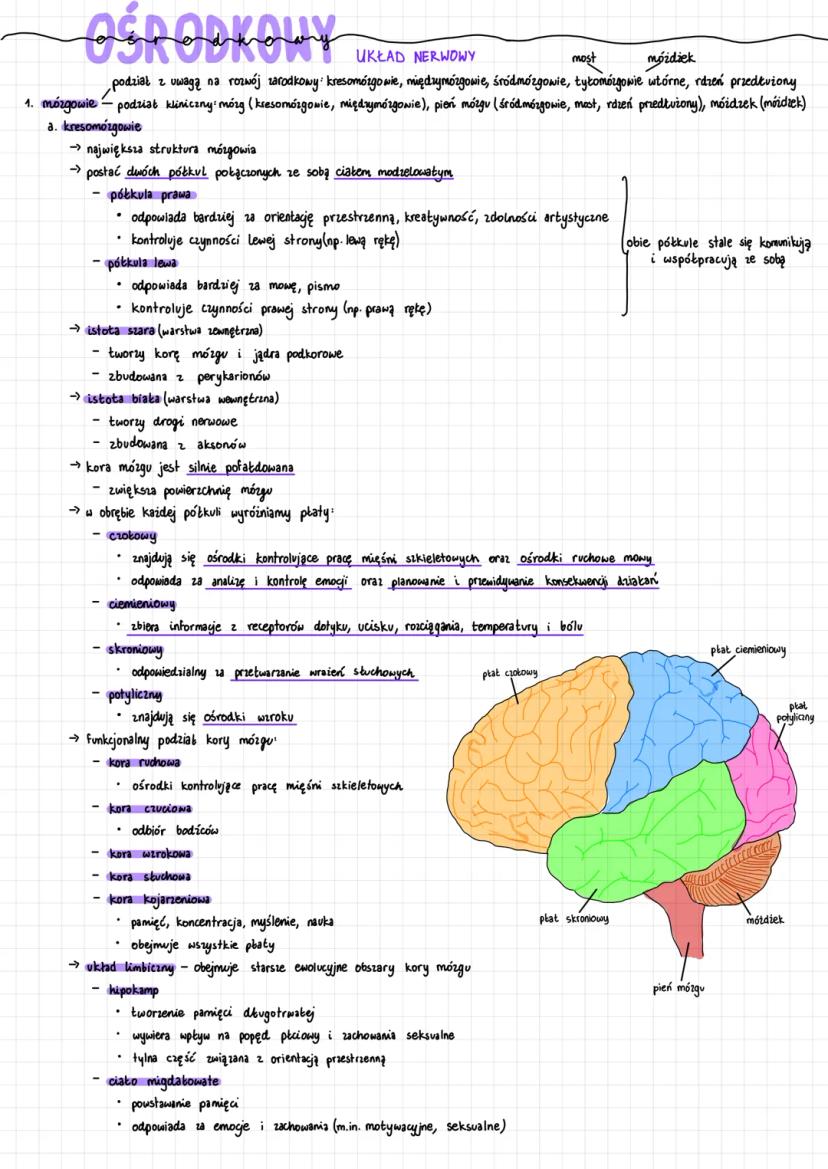 OŚRODKOWY
ośrodkowy
UKŁAD NERWOWY
most móżdżek
podział z uwagą na rozwój zarodkowy: kresomózgowie, międzymózgowie, śródmózgowie, tyłomózgowie wtórne, rdzeń przedłużony
1. mózgowie — podział kliniczny: mózg (kresomózgowie, międzymózgowie), pień mózgu (śródmózgowie, most, rdzeń przedłużony), móżdżek (móżdżek)
a. kresomózgowie
→ największa struktura mózgowia
→ postać dwóch półkul połączonych ze sobą ciałem modzelowatym
- półkula prawa
• odpowiada bardziej za orientację przestrzenną, kreatywność, zdolności artystyczne
• kontroluje czynności lewej strony (np. lewą rękę)
obie półkule stale się komunikują
i współpracują ze sobą
- półkula lewa
• odpowiada bardziej za mowę, pismo
• kontroluje czynności prawej strony (np. prawą rękę)
→ istota szara (warstwa zewnętrzna)
- tworzy korę mózgu i jądra podkorowe
- zbudowana z perykarionów
→ istota biała (warstwa wewnętrzna)
- tworzy drogi nerwowe
- zbudowana z aksonów
→ kora mózgu jest silnie pofałdowana
- zwiększa powierzchnię mózgu
→ w obrębie każdej półkuli wyróżniamy płaty:
- czołowy
• znajdują się ośrodki kontrolujące pracę mięśni szkieletowych oraz ośrodki ruchowe mowy
• odpowiada za analizę i kontrolę emocji oraz planowanie i przewidywanie konsekwencji działań
- ciemieniowy
• zbiera informacje z receptorów dotyku, ucisku, rozciągania, temperatury i bólu
- skroniowy
• odpowiedzialny za przetwarzanie wrażeń słuchowych
- potyliczny
• znajdują się ośrodki wzroku
→ funkcjonalny podział kory mózgu:
- kora ruchowa
• ośrodki kontrolujące pracę mięśni szkieletowych
- kora czuciowa
• odbiór bodźców
- kora wzrokowa
- kora słuchowa
- kora kojarzeniowa
• pamięć, koncentracja, myślenie, nauka
• obejmuje wszystkie płaty
→ układ limbiczny – obejmuje starsze ewolucyjne obszary kory mózgu
- hipokamp
• tworzenie pamięci długotrwałej
• wywiera wpływ na popęd płciowy i zachowania seksualne
• tylna część związana z orientacją przestrzenną
- ciało migdałowate
• powstawanie pamięci
• odpowiada za emocje i zachowania (m.in. motywacyjne, seksualne)
płat czołowy
płat ciemieniowy
płat
potyliczny
płat skroniowy
móżdżek
pień mózgu